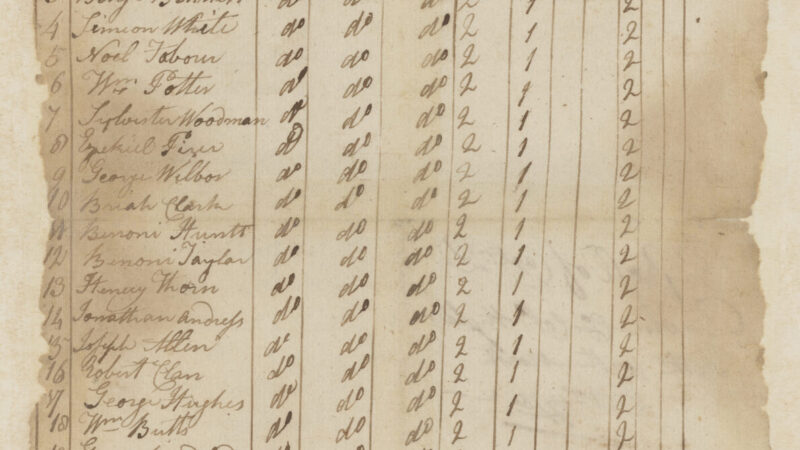 4 Simeon White do do do 2 1 2
5 Noel Tabour do do do 2 1 2
6 Wm Potter do do do 2 1 2
7 Sylvester Woodman do do do 2 1 2
8 Ezekiel do do do 2 1 2
9 George Wilbor do do do 2 1 2
10 Briah Clark do do do 2 1 2
11 Benoni Huntt do do do 2 1 2
12 Benoni Taylar do do do 2 1 2
13 Henery Thorn do do do 2 1 2
14 Jonathan Andress do do do 2 1 2
15 Joseph Allen do do do 2 1 2
16 Robert Clan do do do 2 1 2
17 George Hughes do do do 2 1 2
18 Wm Butts do do do 2 1 2